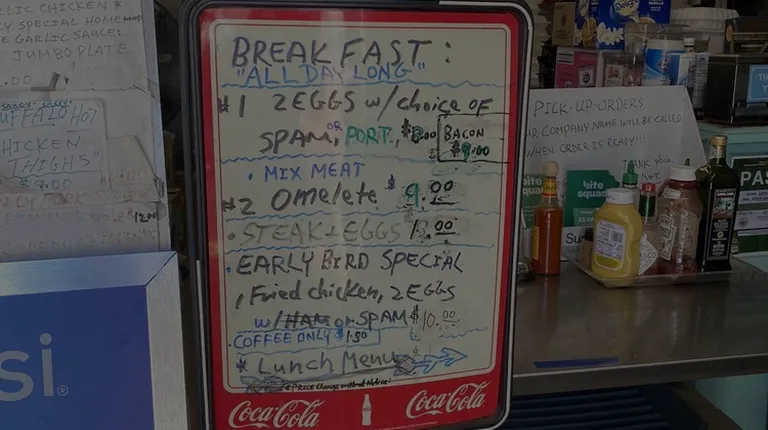 BREAKFAST:
"ALL DAY LONG"
#1 2EGGS w/choice OF
SPAM, OR PORT., $8.00
BACON
$9.00
• MIX MEAT
#2 Omelete $9.00
• STEAK + EGGS 13.00
• EARLY BIRD SPECIAL
, Fried chicken, 2EGGS
w/ HAM or SPAM $10.00
• COFFEE ONLY $1.50
* Lunch Menu
Price Change without Notice
Coca-Cola
Coca-Cola
LIC CHICKEN *
Y SPECIAL HOME
E GARLIC SAUCE:
JUMBO PLATE
.00
UFFALO HOT
HICKEN
THIGHS"
$9.00
si®
PICK-UP-ORDERS
R COMPANY NAME WILL BE CALLED
WHEN ORDER IS READY!!!
THANK YOU,
MGT.
bite
squad
bite
squad
Su
PAS
Delight